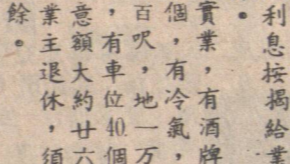 利息按揭給業
。
實業，有酒牌
個，有冷氣，
百呎，地一万
，有車位40個
意額大約廿六
業主退休，須
餘。